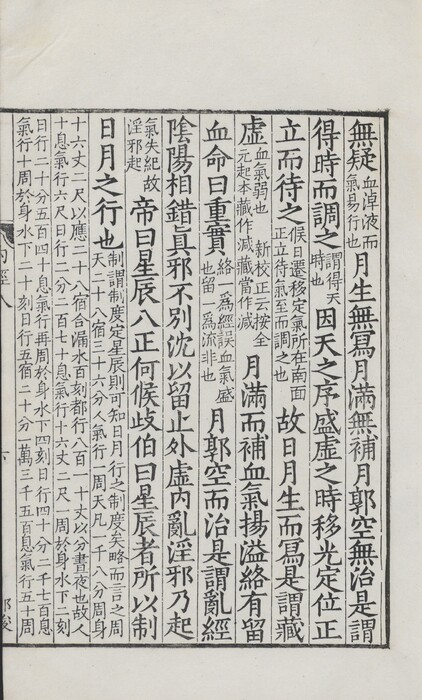 無疑血淖液而氣易行也月生無寫月滿無補月郭空無治是謂
得時而調之謂得天時也因天之序盛虛之時移光定位正
立而待之候日遷移定氣所在南面正立待氣至而調之也故日月生而寫是謂藏
虛血氣弱也 新校正云按全元起本藏作減藏當作減月滿而補血氣揚溢絡有留
血命曰重實絡一爲經誤血氣盛也留一爲流非也月郭空而治是謂亂經
陰陽相錯眞邪不別沈以留止外虛內亂淫邪乃起
氣失紀故淫邪起帝曰星辰八正何候歧伯曰星辰者所以制
日月之行也制謂制度定星辰則可知日月行之制度矣略而言之周天二十八宿三十六分人氣行一周天凡一千八分周身
十六丈二尺以應二十八宿合漏水百刻都行八百一十丈以分晝夜也故人
十息氣行六尺日行二分二百七十息氣行十六丈二尺一周於身水下二刻
日行二十分五百四十息氣行再周於身水下四刻日行四十分二千七百息
氣行十周於身水下二十刻日行五宿二十分一萬三千五百息氣行五十周
內經八
六